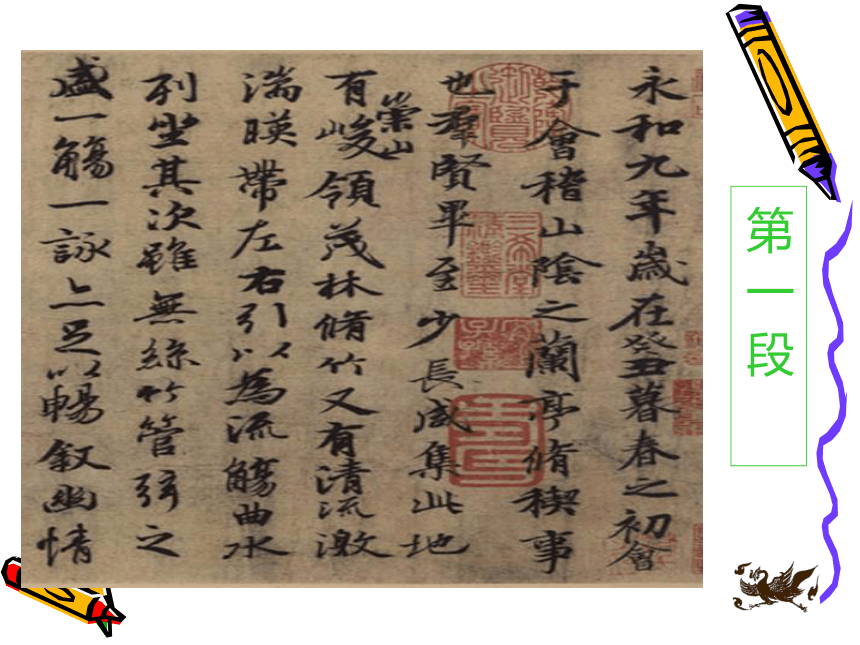 永和九年歲在癸丑暮春之初會
于會稽山陰之蘭亭脩稧事
也羣賢畢至少長咸集此地
有崇山峻領茂林脩竹又有清流激
湍暎帶左右引以為流觴曲水
列坐其次雖無絲竹管弦之
盛一觴一詠亦足以暢敘幽情
第一段